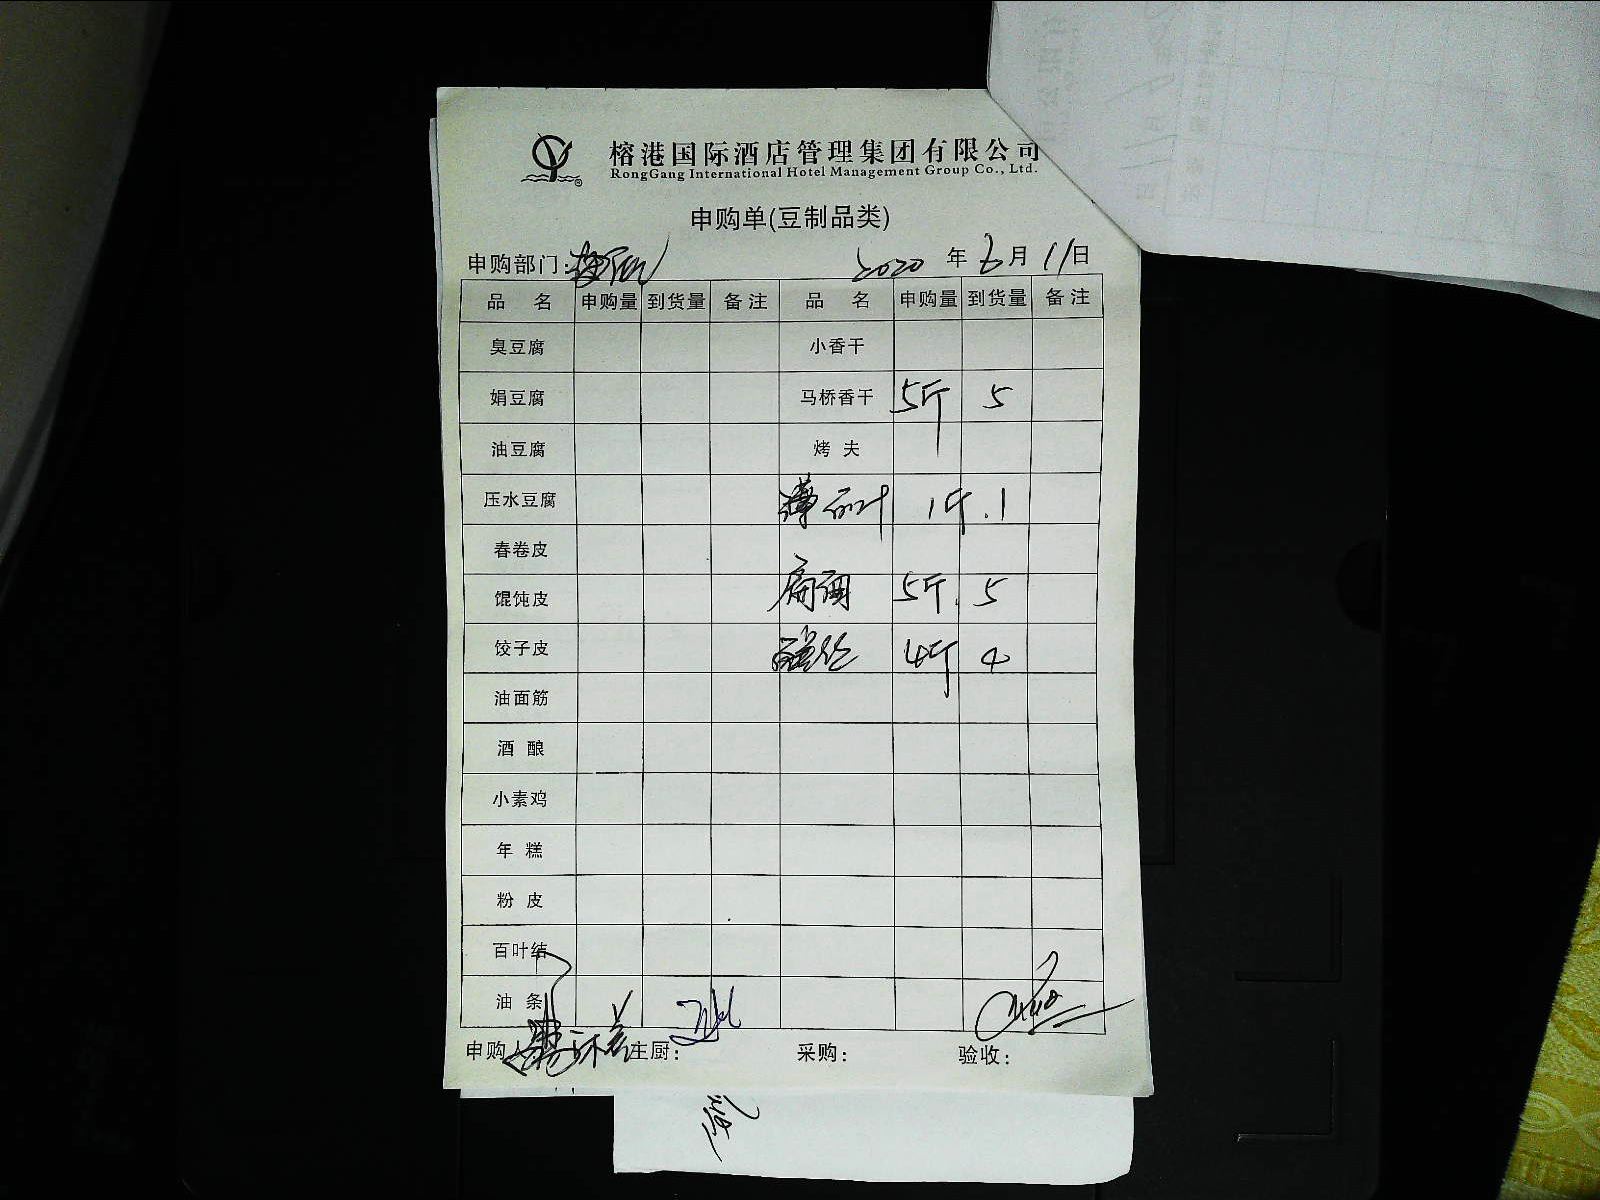 榕港国际酒店管理集团有限公司
RongGang International Hotel Management Group Co., Ltd.
申购单(豆制品类)
申购部门: 2020 年 6 月 11 日
品 名 申购量 到货量 备注 品 名 申购量 到货量 备注
臭豆腐 小香干
娟豆腐 马桥香干 5斤 5
油豆腐 烤 夫
压水豆腐 薄百叶 1斤 1
春卷皮
馄饨皮 5斤 5
饺子皮 4斤 4
油面筋
酒 酿
小素鸡
年 糕
粉 皮
百叶结
油 条
申购人 主厨: 采购: 验收: